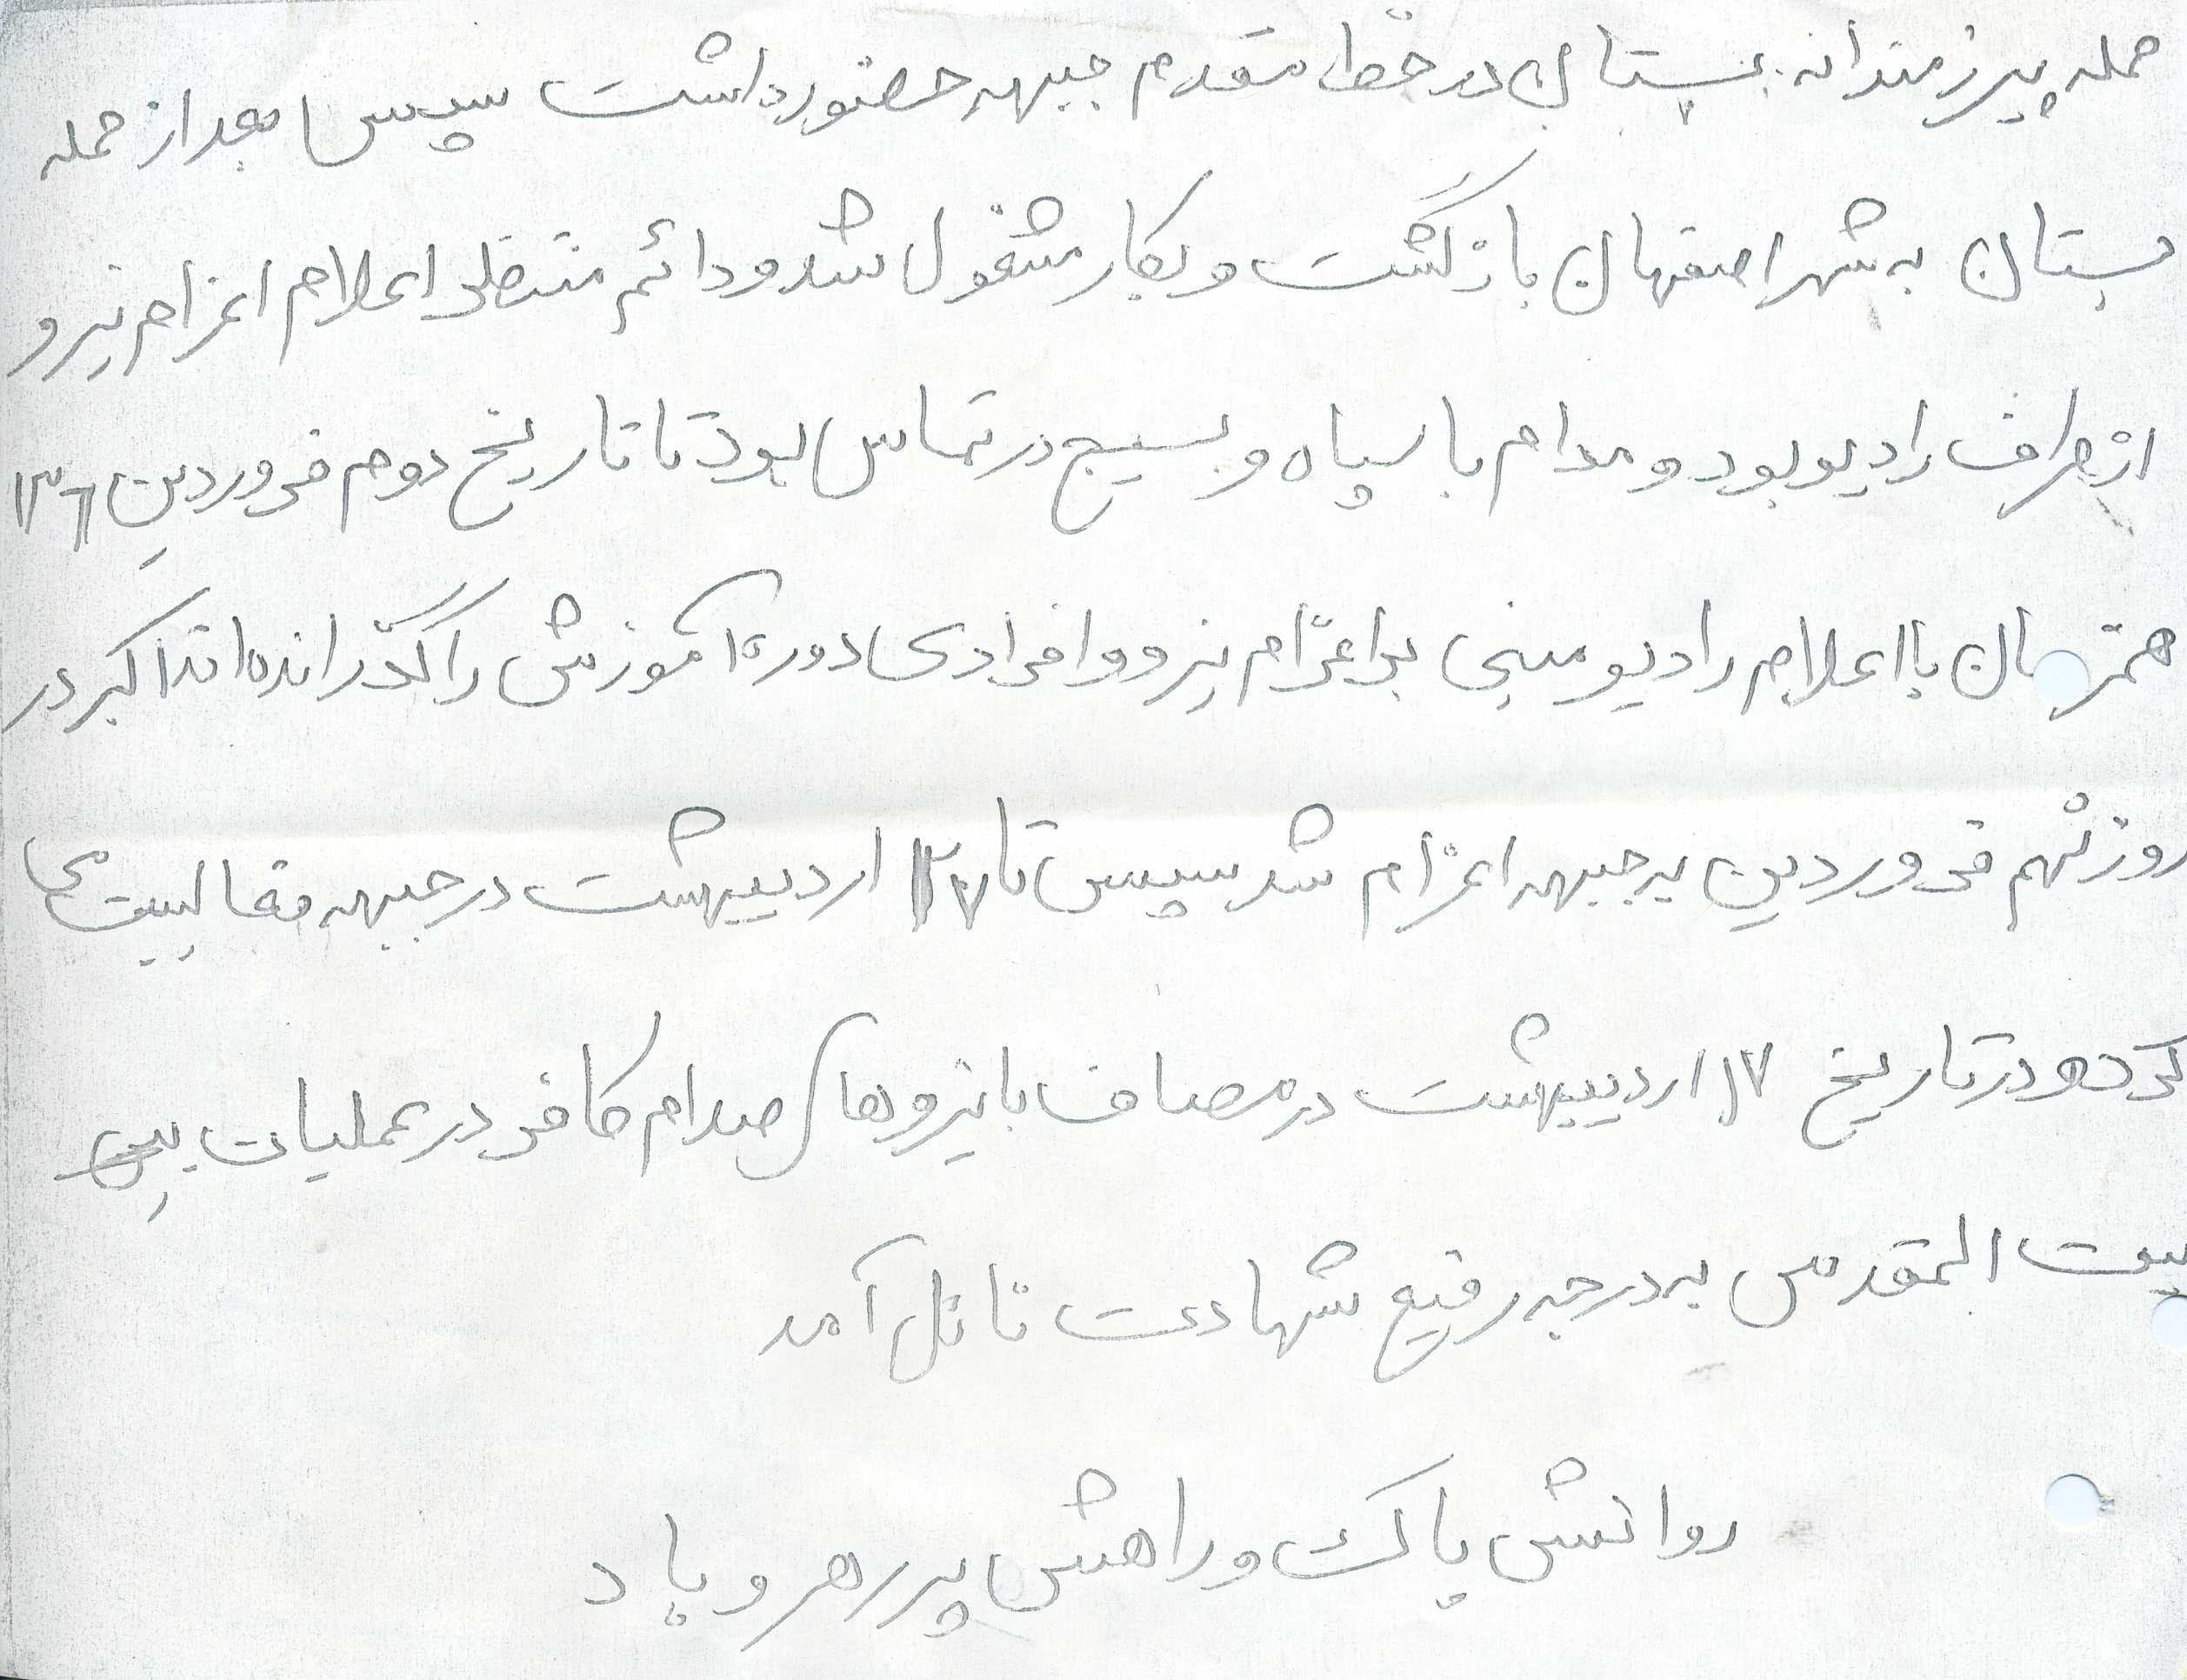 حمله پیرزمندانه بستان در خط مقدم جبهه حضور داشت سپس بعد از حمله
بستان به شهر اصفهان بازگشت و بکار مشغول شد و دائم منتظر اعلام اعزام نیرو
از طرف رادیو بود و مدام با سپاه و بسیج در تماس بود تا تاریخ دوم فروردین ۱۳۶۱
همزمان با اعلام رادیو مبنی بر اعزام نیرو و افرادی دوره آموزش را گذرانده‌اند اکبر در
روز نهم فروردین به جبهه اعزام شد سپس تا ۱۷ اردیبهشت در جبهه فعالیت
کرد و در تاریخ ۱۷ اردیبهشت در مصاف با نیروهای صدام کافر در عملیات
بیت المقدس به درجه رفیع شهادت نائل آمد
روانش پاک و راهش پر رهرو باد